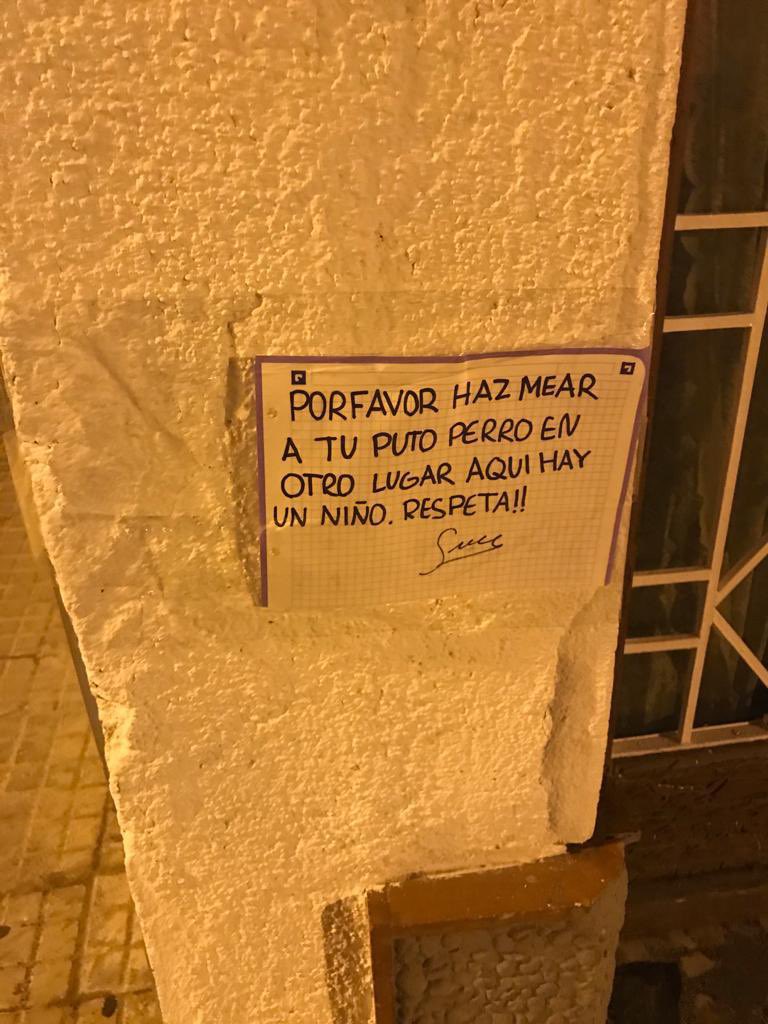 PORFAVOR HAZ MEAR
A TU PUTO PERRO EN
OTRO LUGAR AQUI HAY
UN NIÑO. RESPETA!!